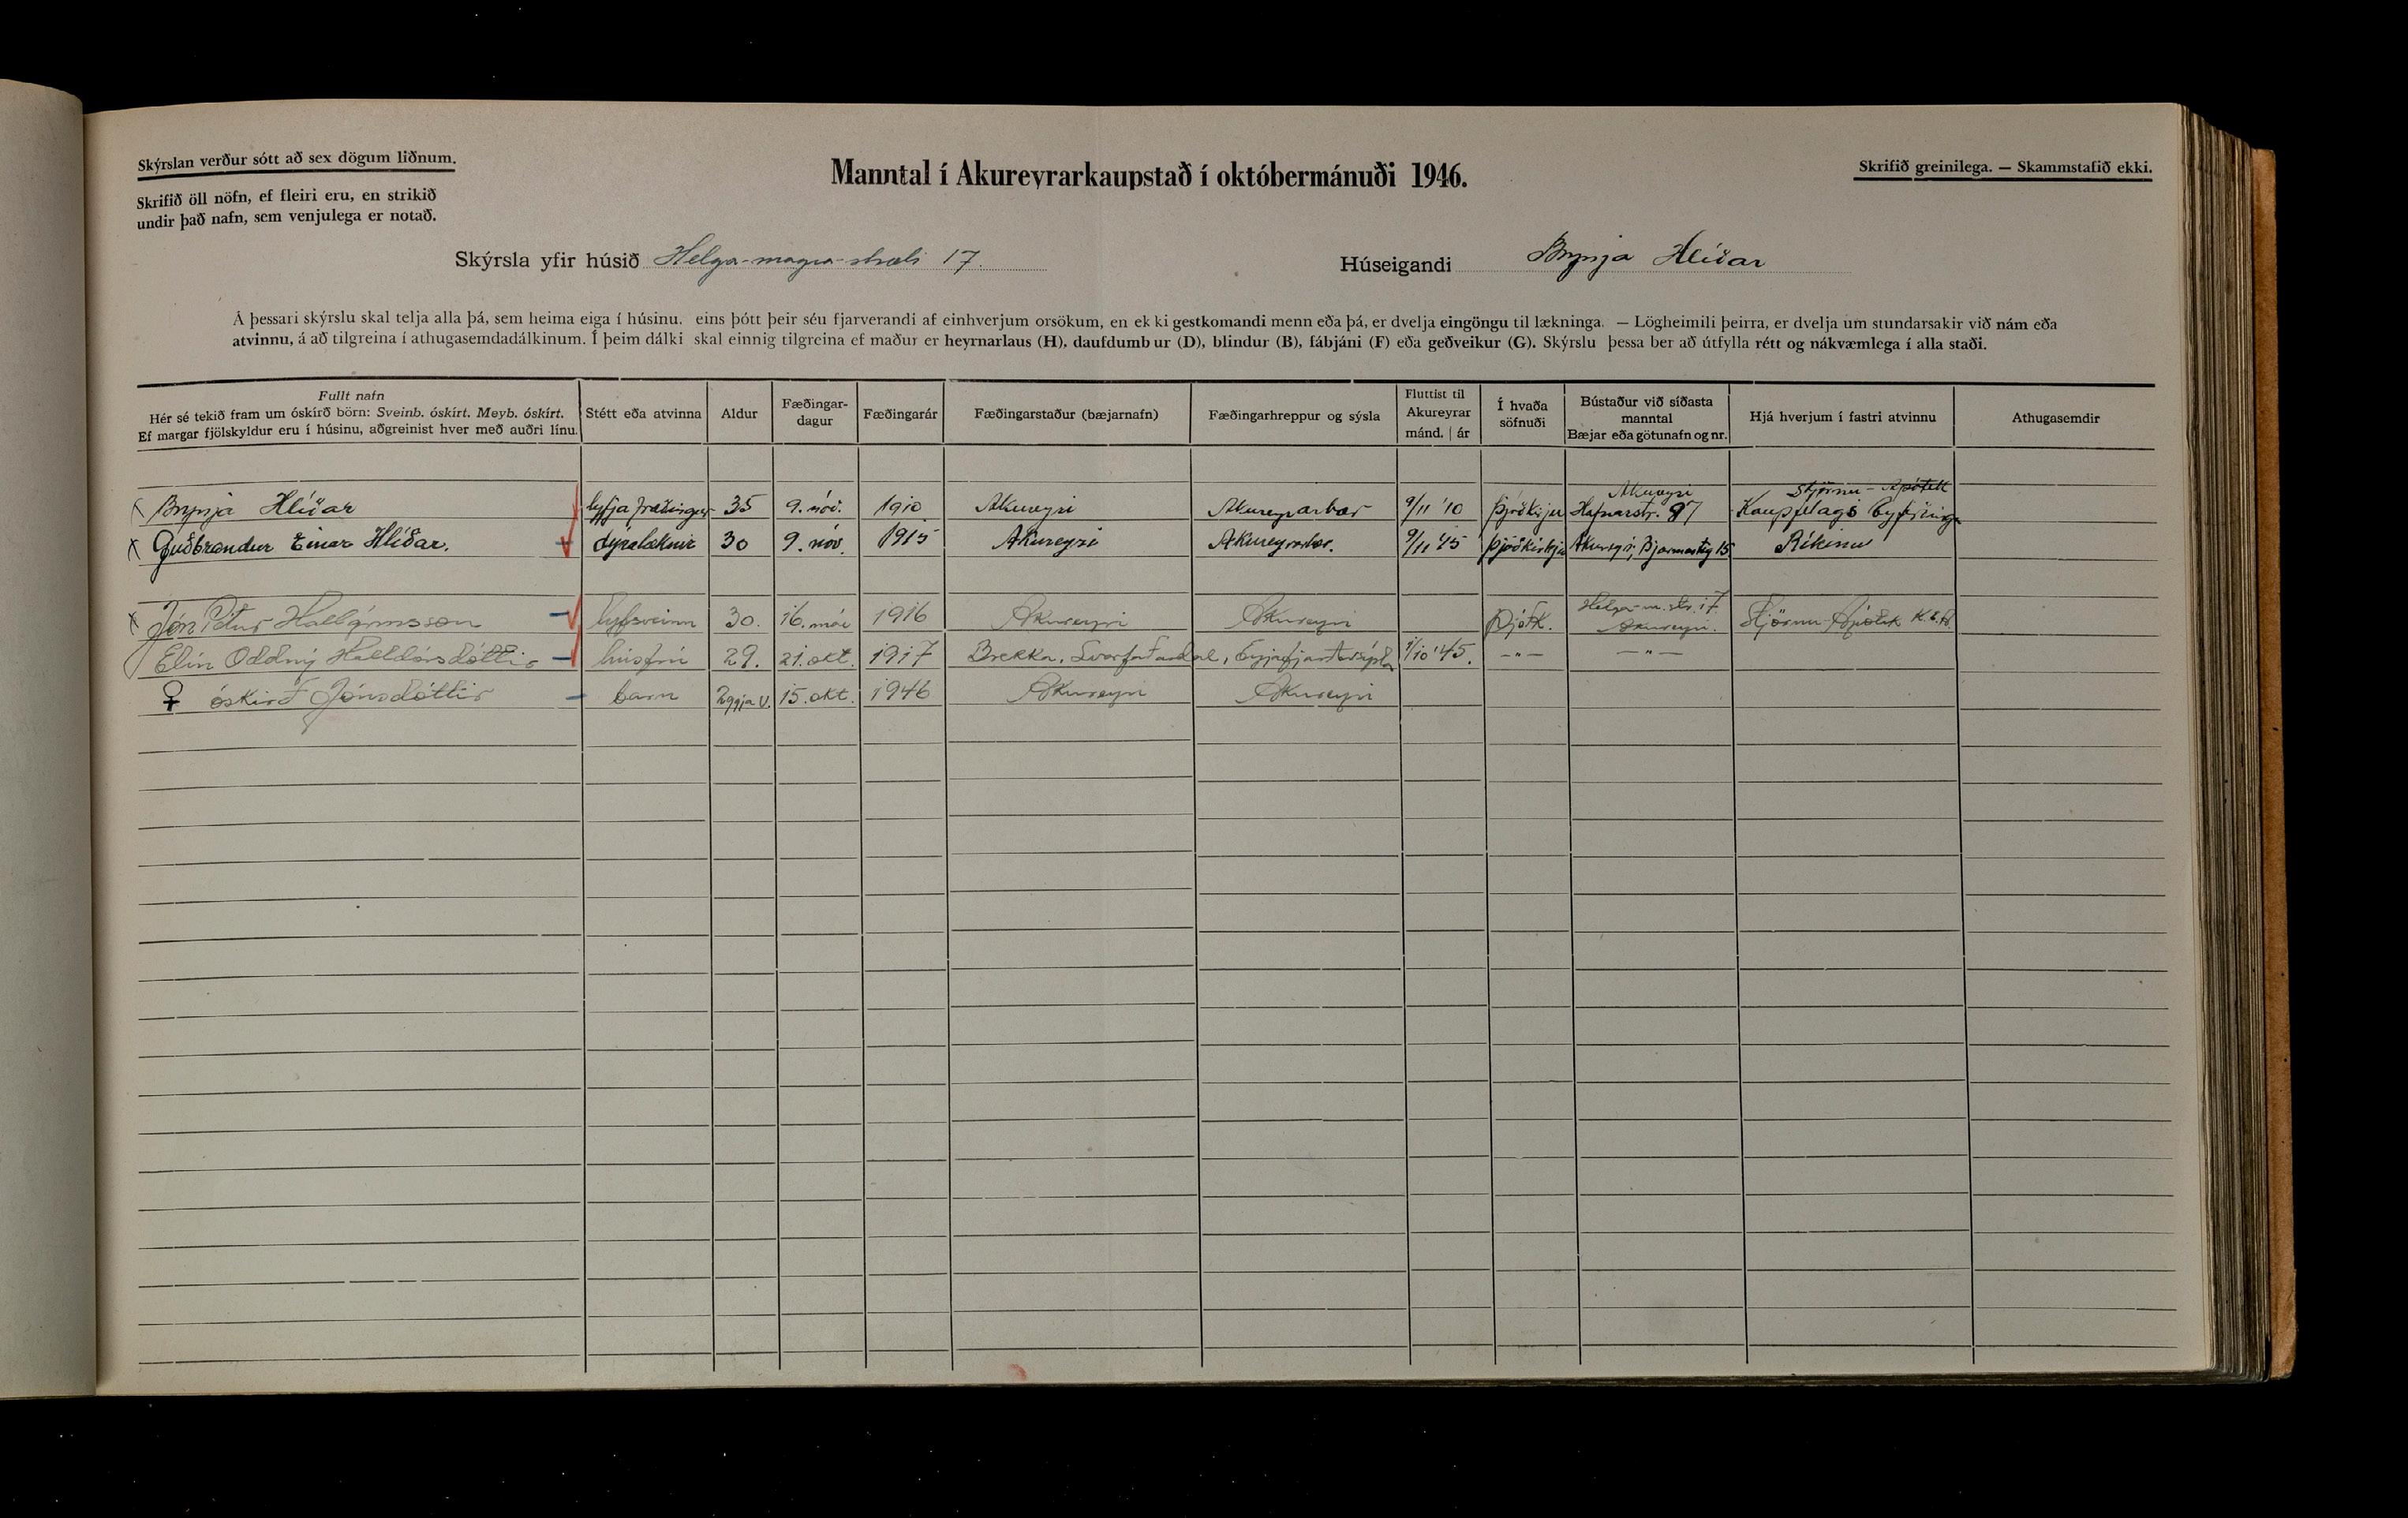 Skýrslan verður sótt að sex dögum liðnum.
Skrifið öll nöfn, ef fleiri eru, en strikið
undir það nafn, sem venjulega er notað.
Manntal í Akureyrarkaupstað í októbermánuði 1946.
Skrifið greinilega. — Skammstafið ekki.
Skýrsla yfir húsið Helga-magra-stræti 17.
Húseigandi Brynja Hlíðar
Á þessari skýrslu skal telja alla þá, sem heima eiga í húsinu, eins þótt þeir séu fjarverandi af einhverjum orsökum, en ek ki gestkomandi menn eða þá, er dvelja eingöngu til lækninga. — Lögheimili þeirra, er dvelja um stundarsakir við nám eða
atvinnu, á að tilgreina í athugasemdadálkinum. Í þeim dálki skal einnig tilgreina ef maður er heyrnarlaus (H), daufdumb ur (D), blindur (B), fábjáni (F) eða geðveikur (G). Skýrslu þessa ber að útfylla rétt og nákvæmlega í alla staði.
Fullt nafn
Hér sé tekið fram um óskírð börn: Sveinb. óskírt. Meyb. óskírt.
Ef margar fjölskyldur eru í húsinu, aðgreinist hver með auðri línu.
Stétt eða atvinna
Aldur
Fæðingar-
dagur
Fæðingarár
Fæðingarstaður (bæjarnafn)
Fæðingarhreppur og sýsla
Fluttist til
Akureyrar
mánd. | ár
Í hvaða
söfnuði
Bústaður við síðasta
manntal
Bæjar eða götunafn og nr.
Hjá hverjum í fastri atvinnu
Athugasemdir
Akureyri Stjörnu-Apótek
Brynja Hlíðar lyfjafræðingur 35 9. nóv. 1910 Akureyri Akureyrarbær 9/11 '10 Þjóðkirkju Hafnarstr. 97 Kaupfélags Eyfirðinga
Guðbrandur Einar Hlíðar. dýralæknir 30 9. nóv. 1915 Akureyri Akureyrarbær. 9/11 '45 Þjóðkirkju Akureyri, Bjarmastíg 15 Ríkinu
Helga-m.str. 17
Jón Pétur Hallgrímsson lyfsveinn 30. 16. maí 1916 Akureyri Akureyri Þjóðk. Akureyri. Stjörnu-Apótek K.E.A.
Elín Oddný Halldórsdóttir húsfrú 29. 21. okt. 1917 Brekka, Svarfaðardal, Eyjafjarðarsýsla 1/10 '45. —"— —"—
♀ óskírð Jónsdóttir barn 2ggja v. 15. okt. 1946 Akureyri Akureyri